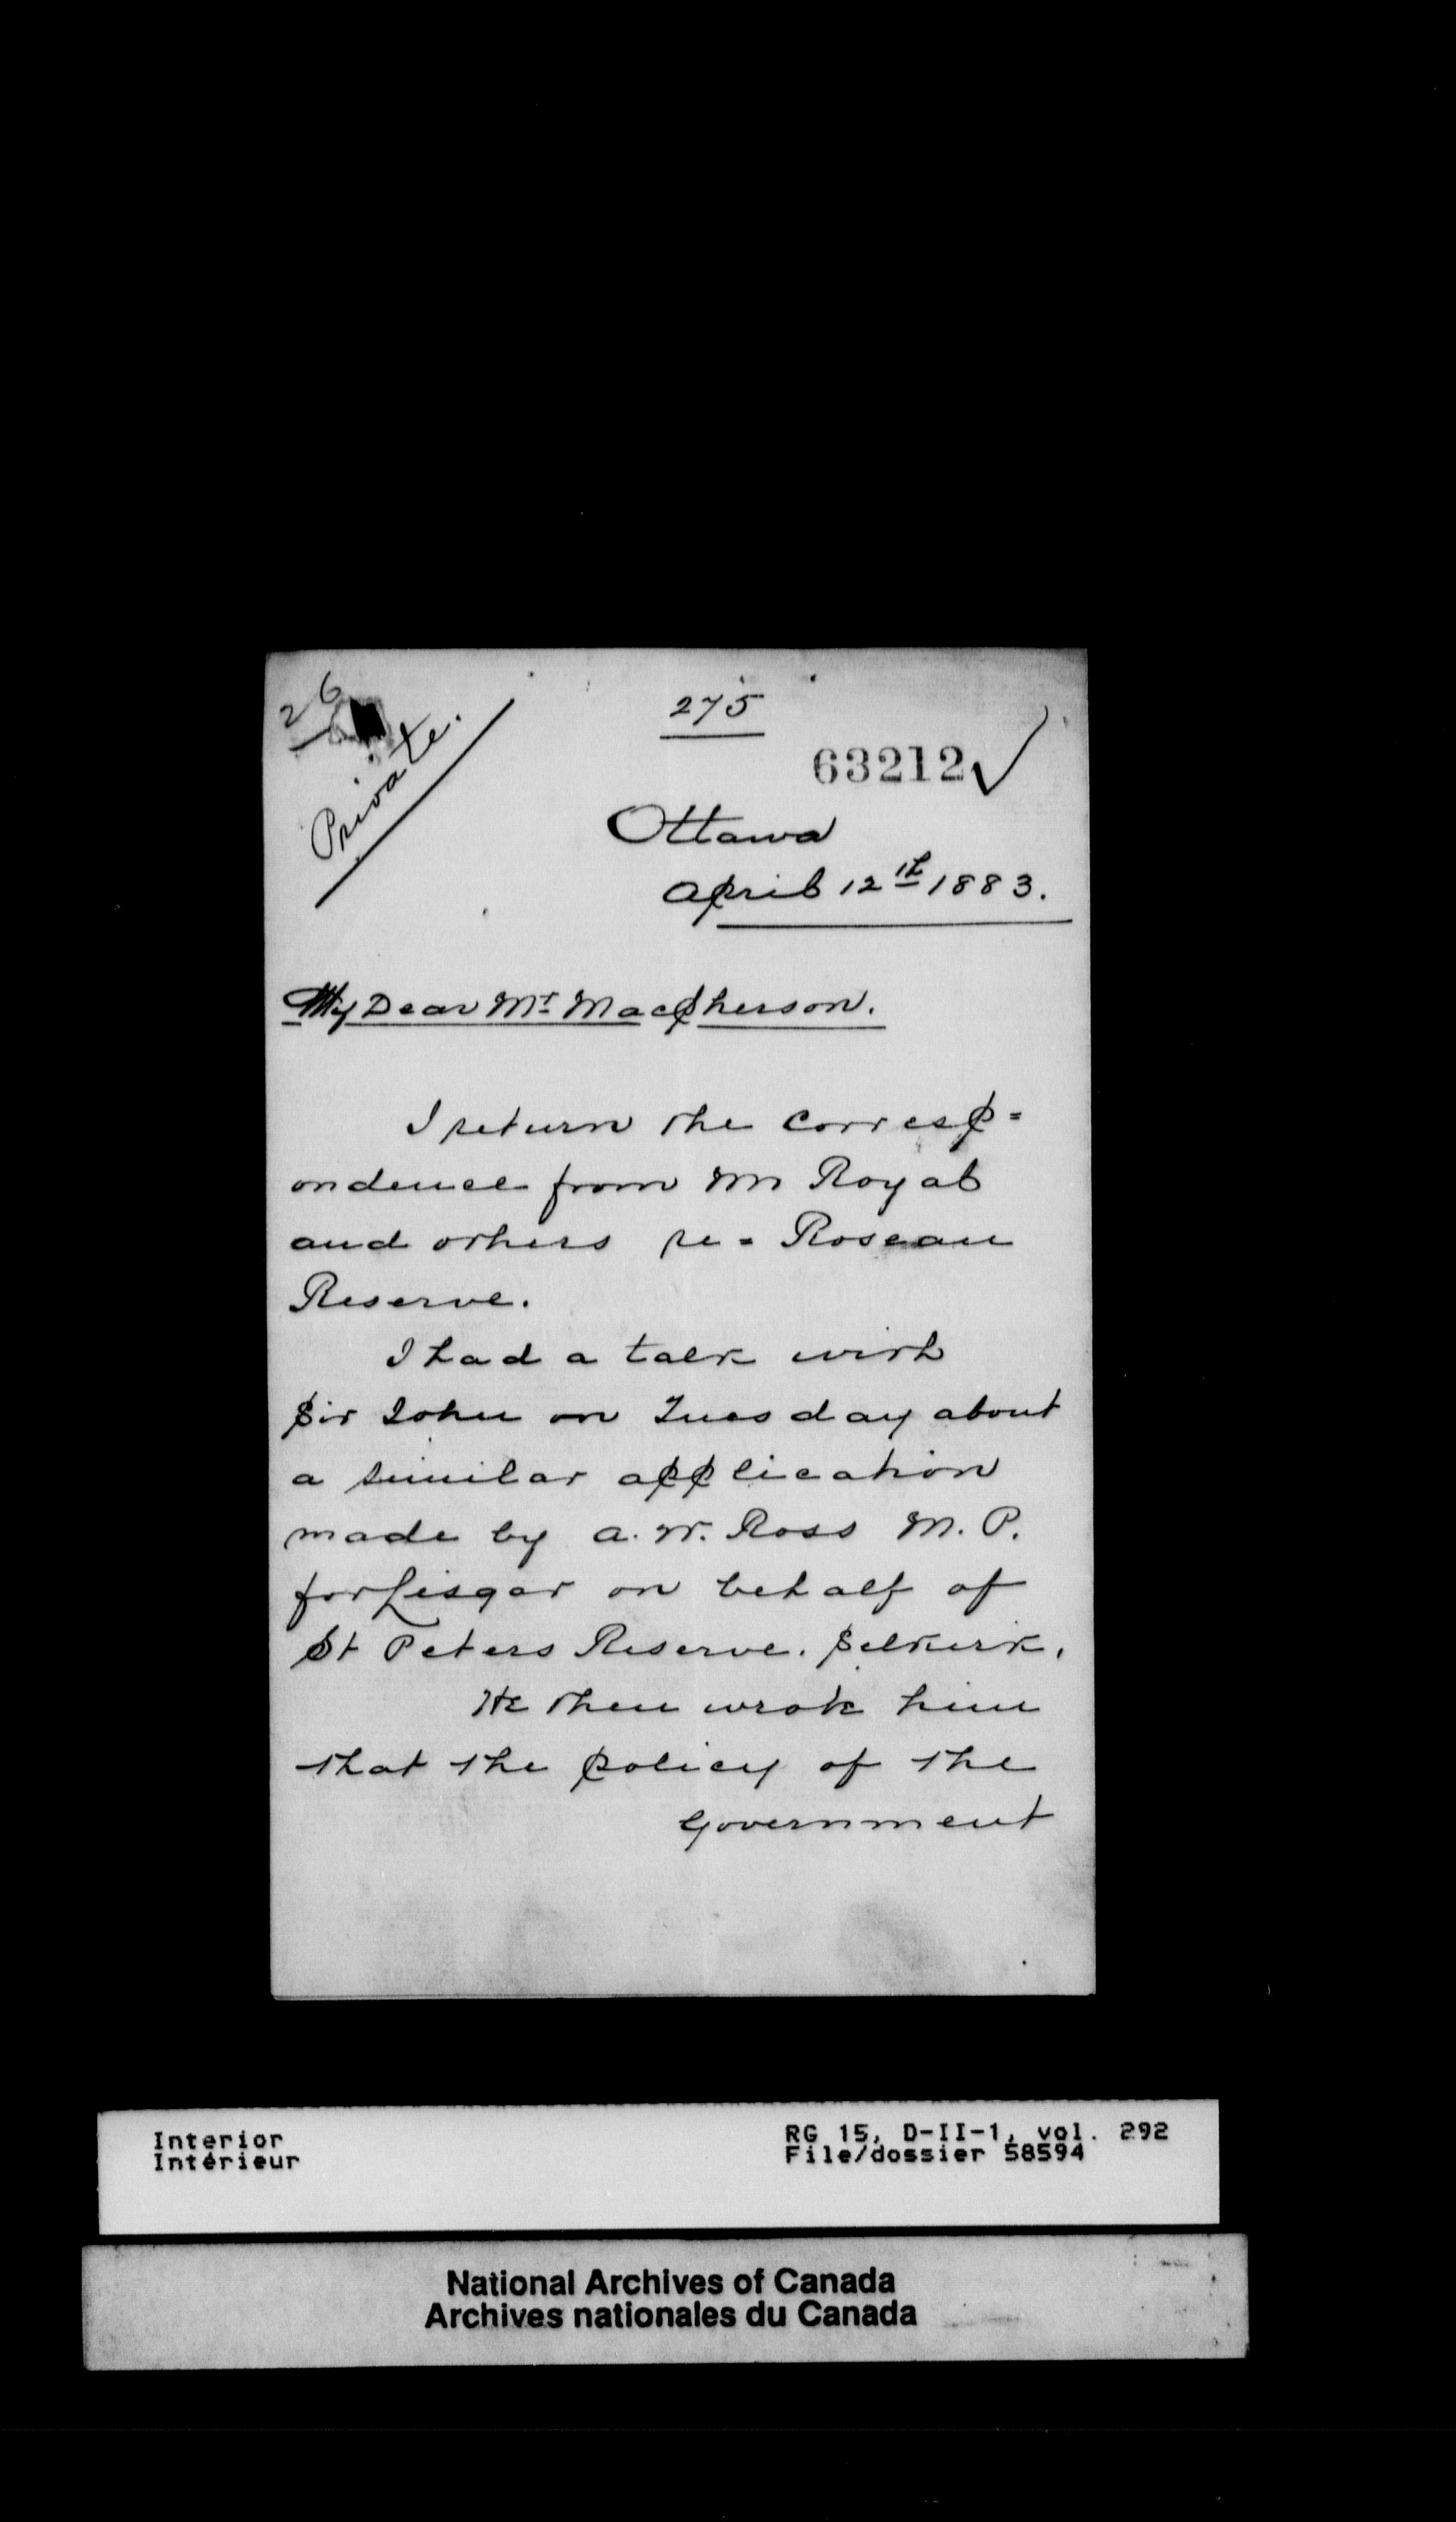 26
Private.
275
63212
Ottawa
April 12th 1883.
My Dear Mr Macpherson.
I return the corresp=
ondence from Mr Royal
and others re= Roseau
Reserve.
I had a talk with
Sir John on Tuesday about
a similar application
made by A. W. Ross M. P.
for Lisgar on behalf of
St Peters Reserve. Selkirk.
He then wrote him
that the policy of the
Government
Interior
Intérieur
RG 15, D-II-1, vol. 292
File/dossier 58594
National Archives of Canada
Archives nationales du Canada